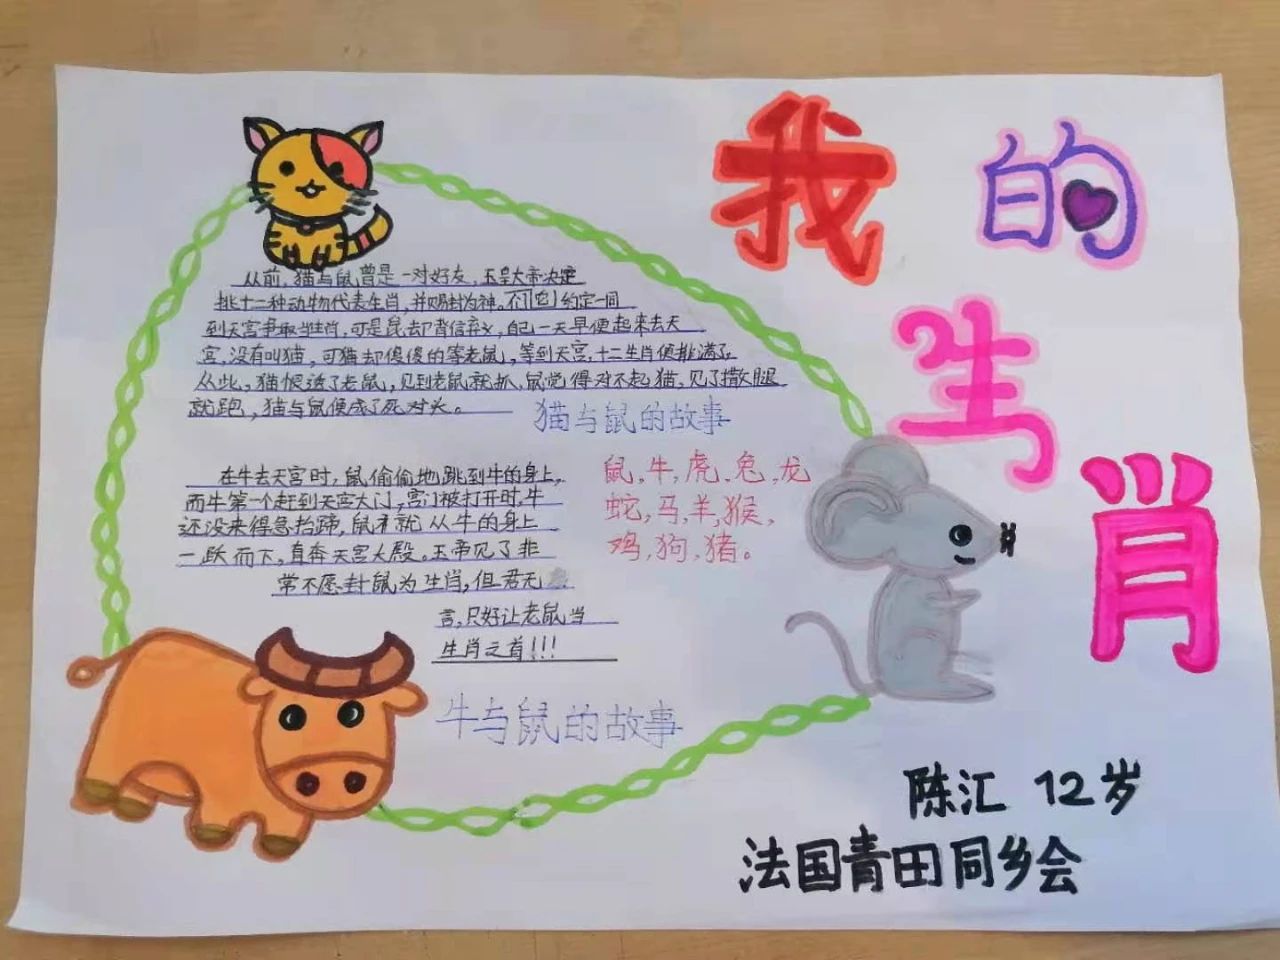 我的
生
肖
从前，猫与鼠曾是一对好友，玉皇大帝决定
挑十二种动物代表生肖，并赐封为神。它们约定一同
到天宫争取当生肖，可是鼠却背信弃义，自己一大早便起来去天
宫，没有叫猫，可猫却傻傻的等老鼠，等到天宫，十二生肖便排满了。
从此，猫恨透了老鼠，见到老鼠就抓，鼠觉得对不起猫，见了撒腿
就跑，猫与鼠便成了死对头。
猫与鼠的故事
在牛去天宫时，鼠偷偷地跳到牛的身上，
而牛第一个赶到天宫大门，宫门被打开时，牛
还没来得急抬蹄，鼠才就从牛的身上
一跃而下，直奔天宫大殿。玉帝见了非
常不愿封鼠为生肖，但君无
言，只好让老鼠当
生肖之首!!!
牛与鼠的故事
鼠，牛，虎，兔，龙
蛇，马，羊，猴，
鸡，狗，猪。
陈汇 12岁
法国青田同乡会